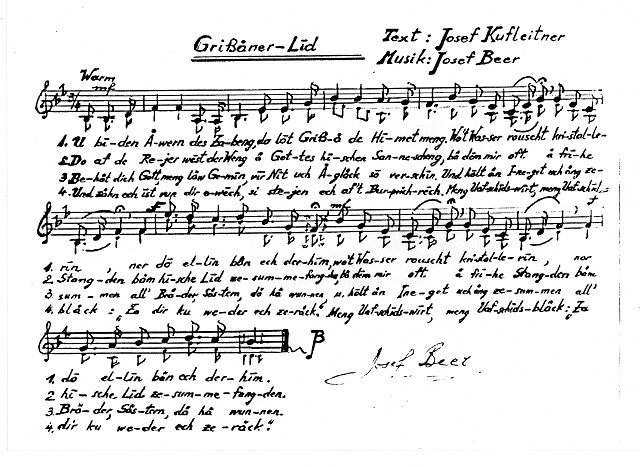 Grißåner-Lïd
Text: Josef Kufleitner
Musik: Josef Beer
Warm
mf
1. U bi-den Å-wern des Za-beng, do löt Griß-å de Hi-met meng. Wo't Was-ser rouscht kri-stal-le-
2. Do af de Re-jer wëst der Weng å Got-tes hi-schen San-ne-scheng, bå dëm mir oft å fri-he
3. Be-håt dich Gott, meng låw Ge-min, vür Nit uch Å-glåck sö ver-schin. Und hålt ån Ine-get uch ång ze-
4. Und zåhn ech ist vun dir e-wëch, si ste-jen ech af't Bur-prich-rëch. Meng Uef-schids-wirt, meng Uef-schids-
1. rin, ner dö el-lin bån ech der-him, wo't Was-ser rouscht kri-stal-le-rin, nor
2. Stang-den båm hi-sche Lïd ze-sum-me- bå dëm mir oft å fri-he Stang-den båm
3. sum-men all' Brå-der Sås-tern, då hå wun-nen u. hålt ån Ine-get uch ång ze-sum-men all'
4. blåck: "Za dir ku we-der ech ze-råck". Meng Uef-schids-wirt, meng Uef-schids-blåck: "Za
mf
1. dö el-lin bån ech der-him.
2. hi-sche Lïd ze-sum-me-fang-den.
3. Brå-der, Sås-tern, då hå wun-nen.
4. dir ku we-der ech ze-råck."
Josef Beer